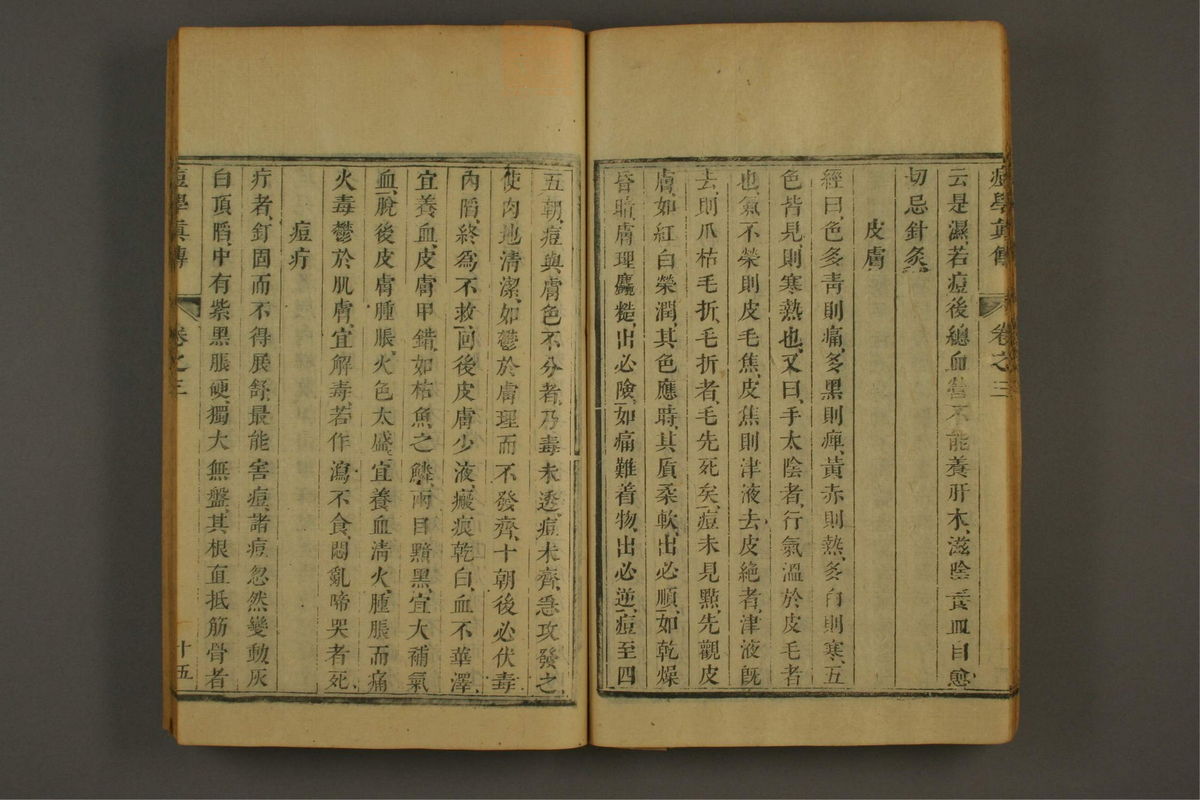 痘學真傳 卷之三
云是濕、若痘後總血嘗不能養肝木、滋陰養血目愈、
切忌針灸、
皮膚
經曰、色多青則痛、多黑則痺、黃赤則熱、多白則寒、五
色皆見、則寒熱也、又曰、手太陰者、行氣溫於皮毛者
也、氣不榮則皮毛焦、皮焦則津液去、皮絶者、津液旣
去、則爪枯毛折、毛折者、毛先死矣、痘未見點、先觀皮
膚、如紅白榮潤、其色應時、其質柔軟、出必順、如乾燥
昏暗、膚理麤糙、出必險、如痛難着物、出必逆、痘至四
五朝、痘與膚色不分者、乃毒未透、痘未齊、急攻發之、
使肉地清潔、如鬱於膚理而不發齊、十朝後必伏毒
內陷、終為不救、回後皮膚少液、癜痕乾白、血不華澤、
宜養血、皮膚甲錯、如枯魚之鱗、兩目黯黑、宜大補氣
血、脫後皮膚腫脹、火色太盛、宜養血清火、腫脹而痛、
火毒鬱於肌膚、宜解毒、若作瀉不食、悶亂啼哭者死、
痘疔
疔者、釘固而不得展舒、最能害痘、諸痘忽然變動、灰
白頂陷、中有紫黑脹硬、獨大無盤、其根直抵筋骨者
痘學真傳 卷之三 十五